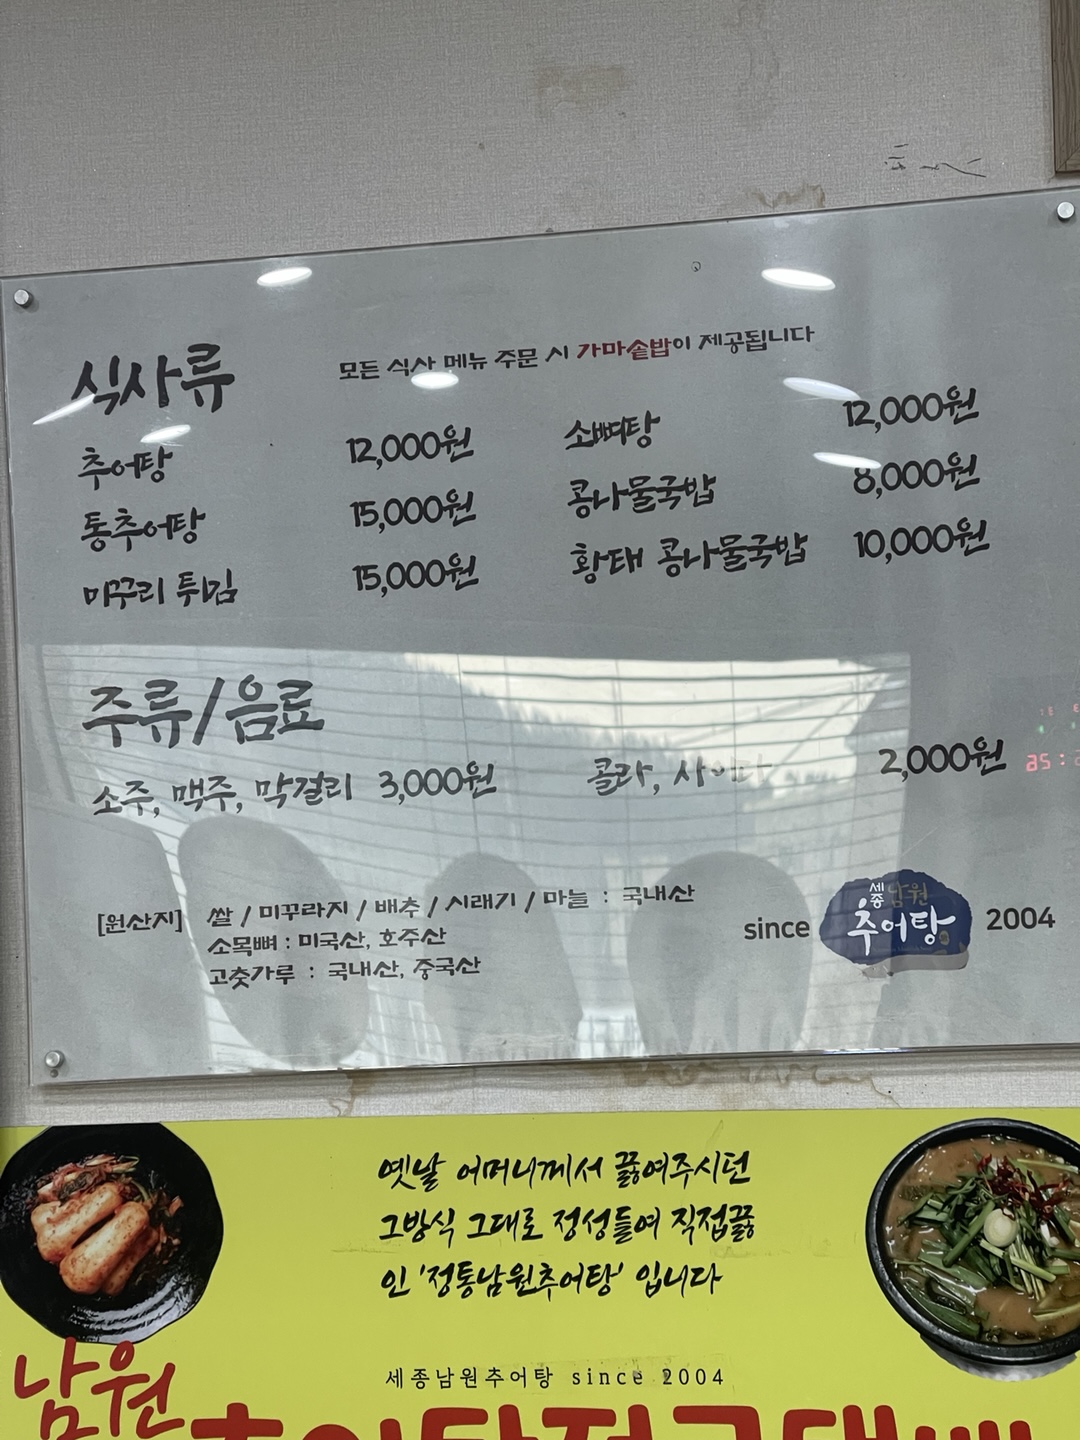 식사류
모든 식사 메뉴 주문 시 가마솥밥이 제공됩니다
추어탕 12,000원
통추어탕 15,000원
미꾸리 튀김 15,000원
소뼈탕 12,000원
콩나물국밥 8,000원
황태 콩나물국밥 10,000원
주류/음료
소주, 맥주, 막걸리 3,000원
콜라, 사이다 2,000원
[원산지] 쌀 / 미꾸라지 / 배추 / 시래기 / 마늘 : 국내산
소목뼈 : 미국산, 호주산
고춧가루 : 국내산, 중국산
since 세종 남원 추어탕 2004
옛날 어머니께서 끓여주시던
그방식 그대로 정성들여 직접끓
인 '정통남원추어탕' 입니다
세종남원추어탕 since 2004
남원